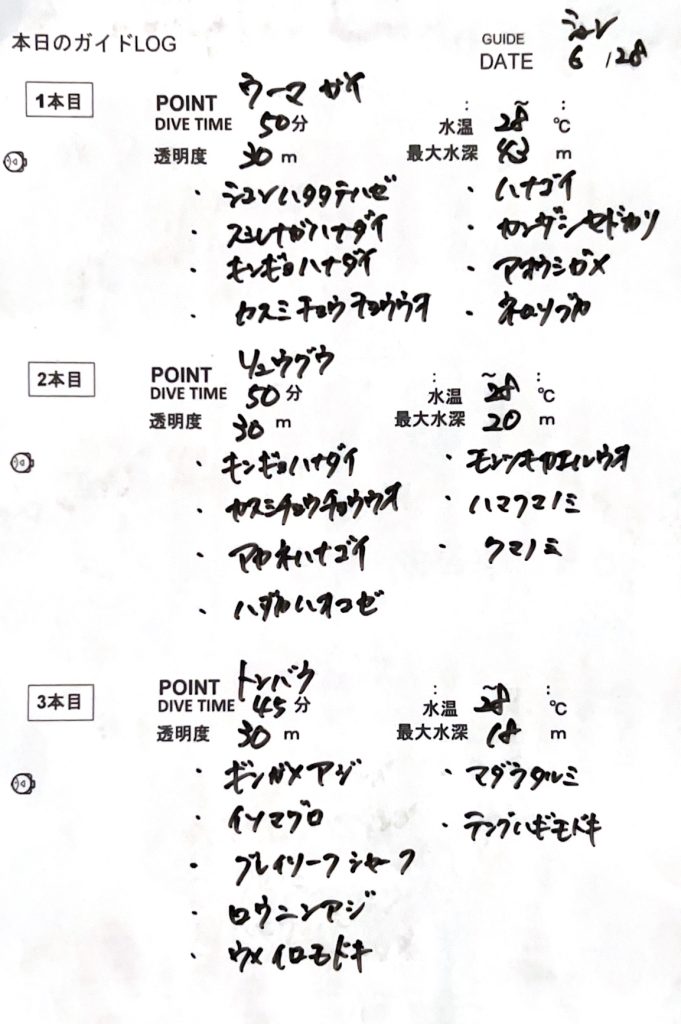 本日のガイドLOG
GUIDE シュン
DATE 6 /28
1本目
POINT ウーマ ガイ
DIVE TIME 50分
水温 ~28 ℃
透明度 30 m
最大水深 43 m
・シュンハタタテハゼ
・ハナゴイ
・スミレナガハナダイ
・カンザシヤドカリ
・キンギョハナダイ
・アオウミガメ
・カスミチョウチョウウオ
・ネムリブカ
2本目
POINT リュウグウ
DIVE TIME 50分
水温 ~28 ℃
透明度 30 m
最大水深 20 m
・キンギョハナダイ
・モンツキカエルウオ
・カスミチョウチョウウオ
・ハマクマノミ
・アカネハナゴイ
・クマノミ
・ハダカハオコゼ
3本目
POINT トンバラ
DIVE TIME 45分
水温 ~28 ℃
透明度 30 m
最大水深 18 m
・ギンガメアジ
・マダラタルミ
・イソマグロ
・テングハギモドキ
・グレイリーフシャーク
・ロウニンアジ
・ウメイロモドキ